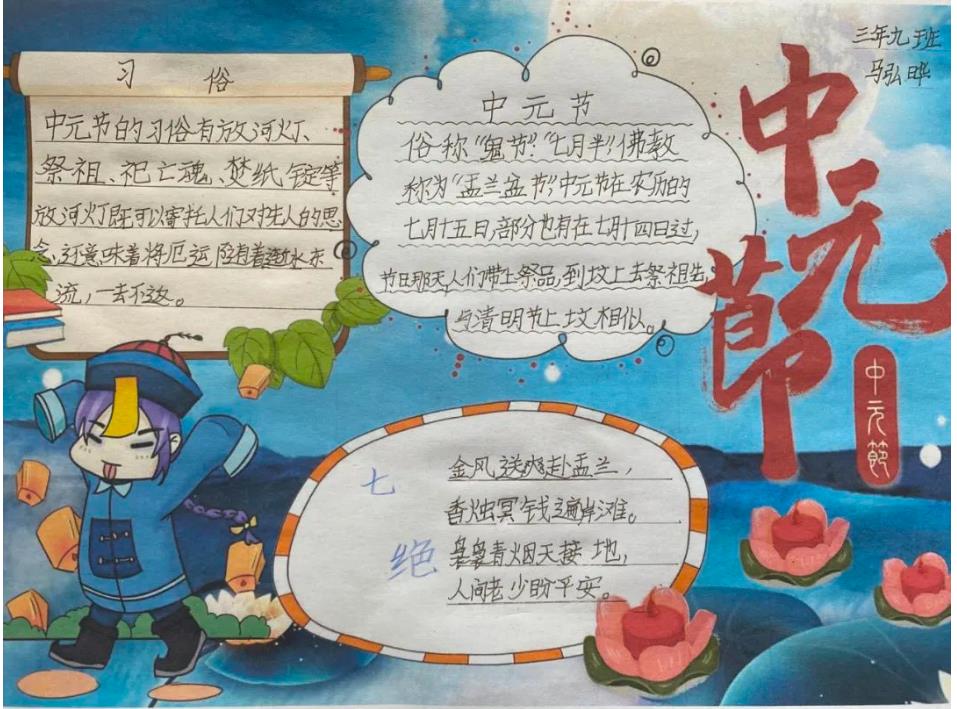 三年九班
马弘晔
中元节
中元節
习俗
中元节的习俗有放河灯、
祭祖、祀亡魂、焚纸锭等
放河灯既可以寄托人们对先人的思
念,还意味着将厄运随着逝水东
流,一去不返。
中元节
俗称“鬼节”“七月半”佛教
称为“盂兰盆节”中元节在农历的
七月十五日,部分也有在七月十四日过,
节日那天人们带上祭品,到坟上去祭祖先
与清明节上坟相似。
七
绝
金风送爽赴盂兰,
香烛冥钱遍岸滩。
袅袅青烟天接地,
人间老少盼平安。